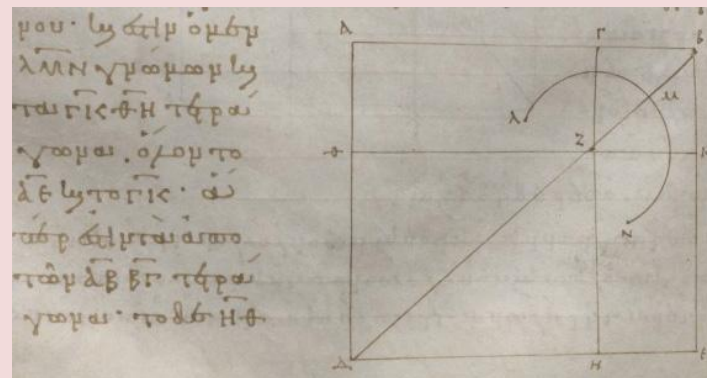 μου· ϗ ἐστὶν ὁ μὲν
ΛΜΝ γνώμων ϗ
τὰ ΓΚ ΘΗ τετρά
γωνα. ὅλον τὸ
ΑΕ ϗ τὸ ΓΚ· ἅ
περ ἐστὶν τὰ ἀπὸ
τῶν ΑΒ ΒΓ τετρά
γωνα· τὸ δὲ ΗΘ
Α Γ Β
Λ Μ
Θ Ζ Κ
Ν
Δ Η Ε